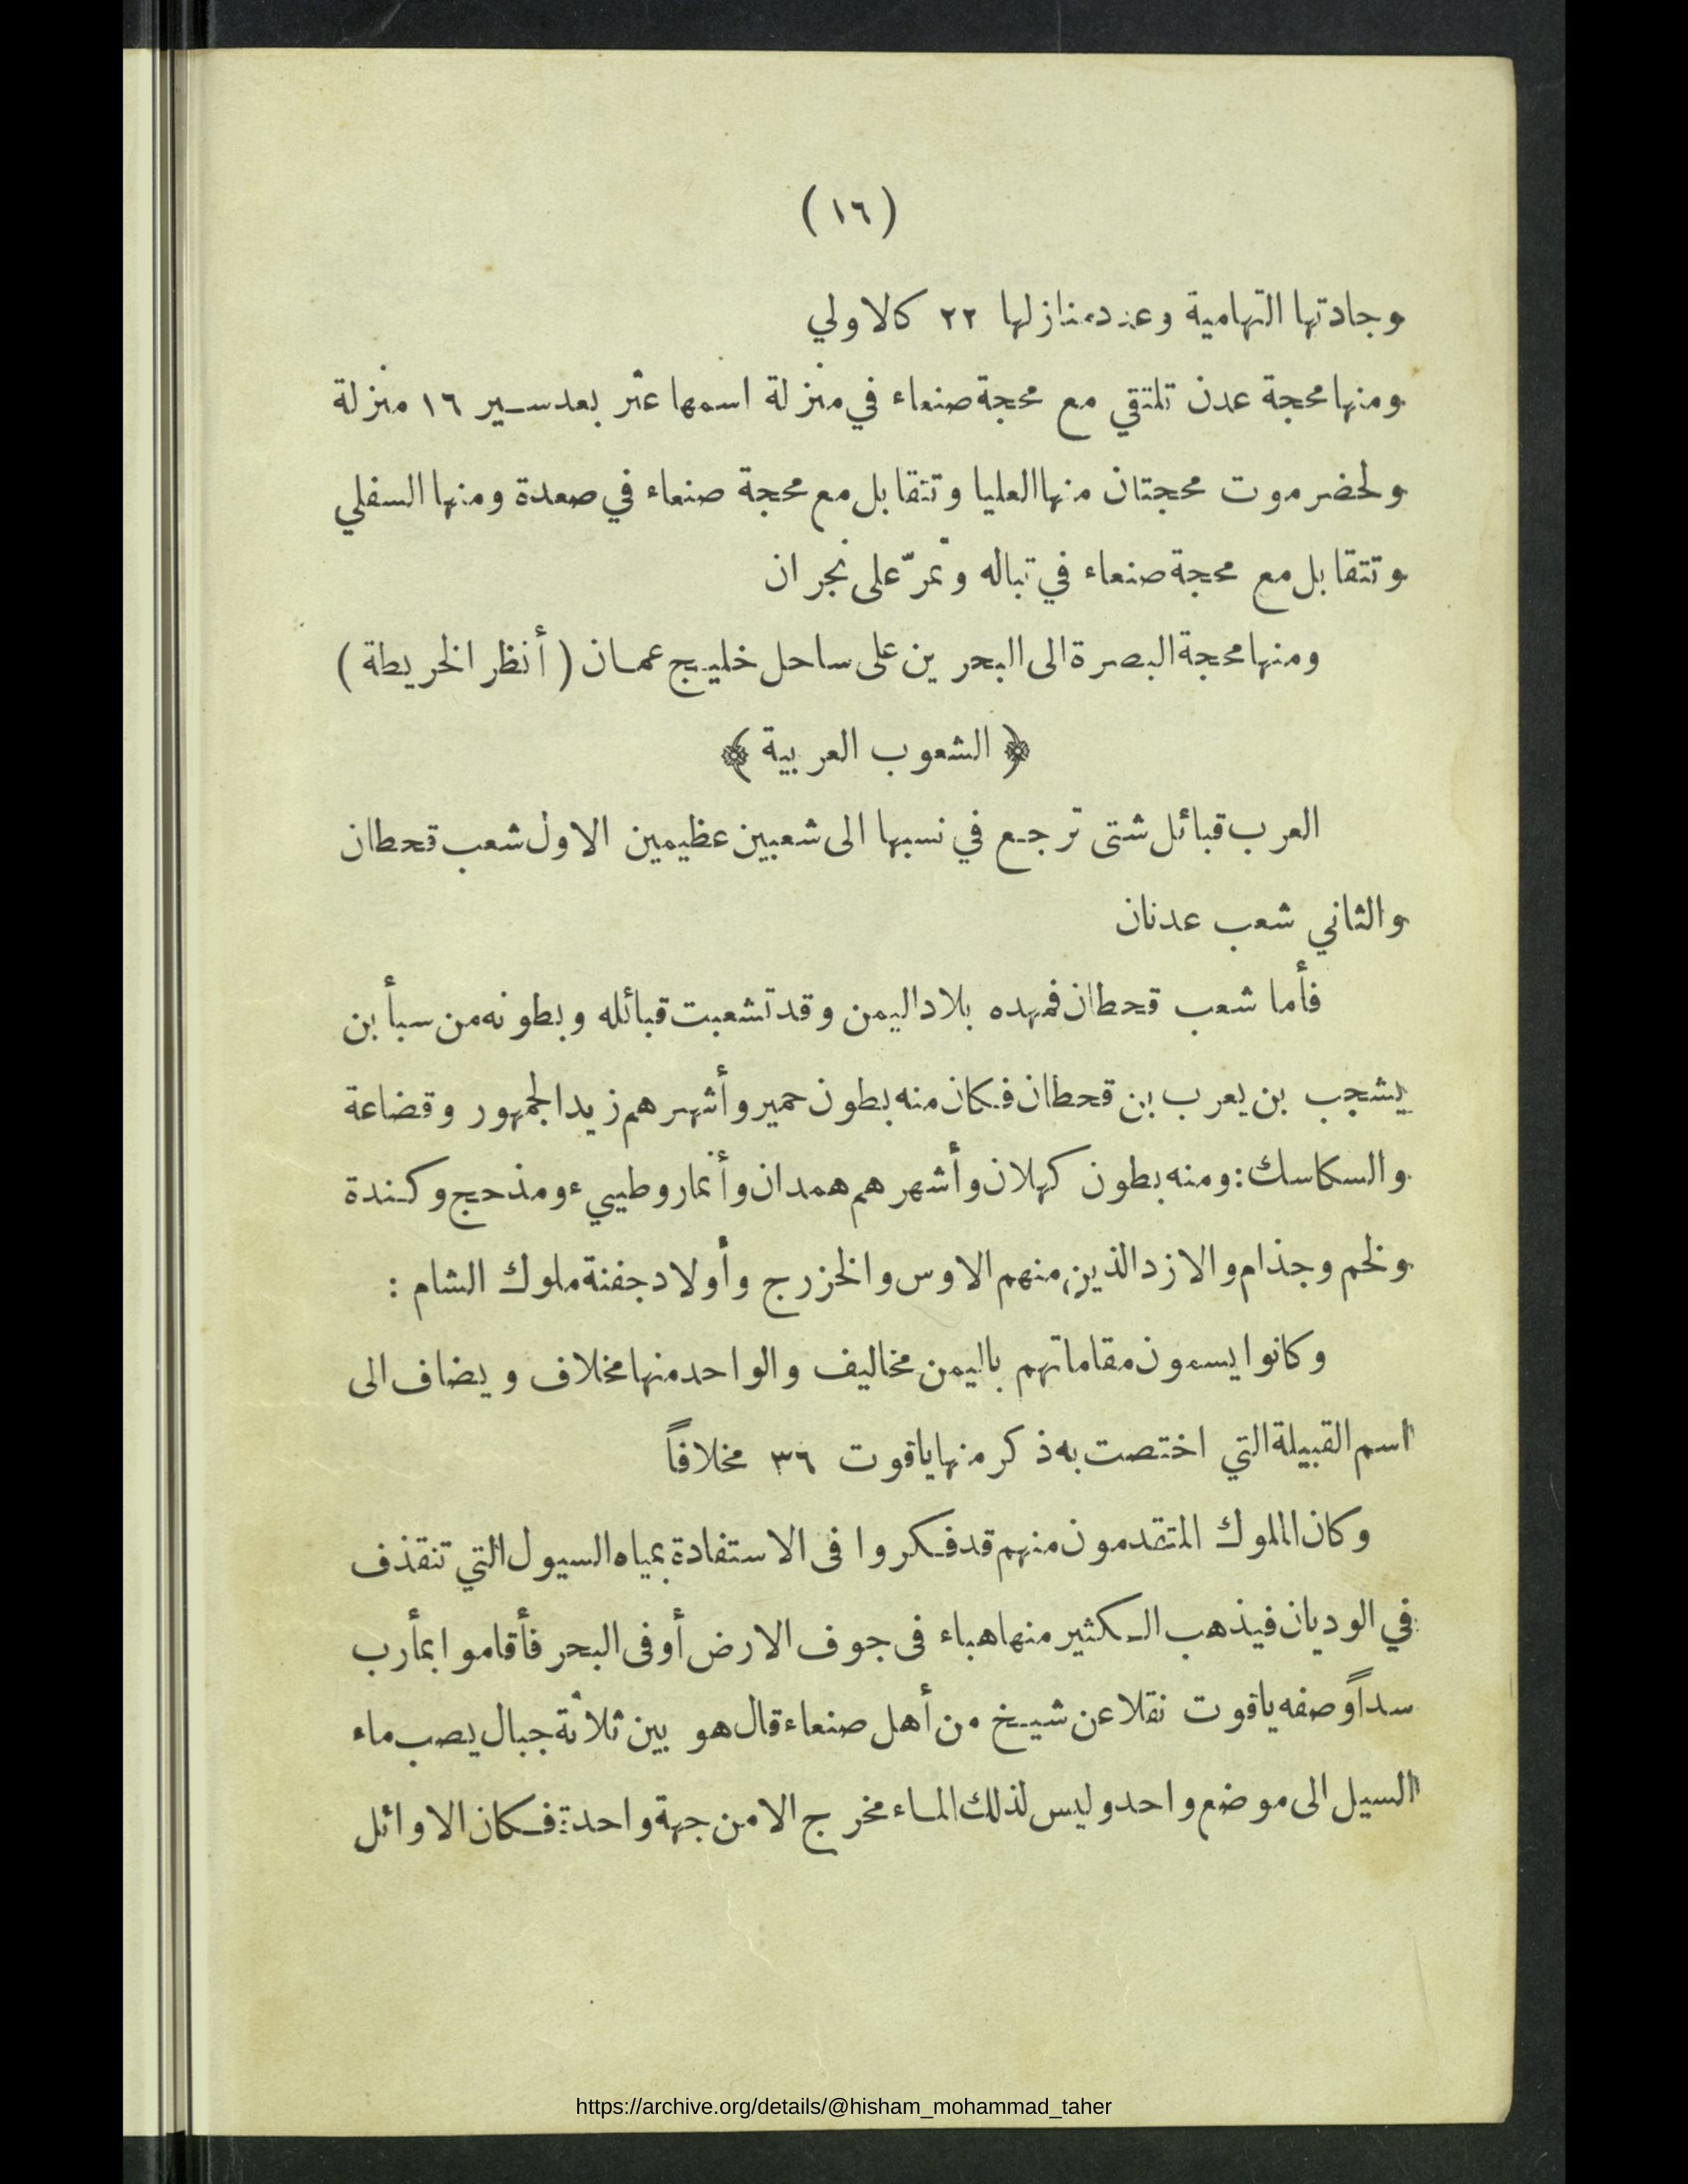 (١٦)
وجادتها التهامية وعدد منازلها ٢٢ كالاولي
ومنها محجة عدن تلتقي مع محجة صنعاء في منزلة اسمها عثر بعد سير ١٦ منزلة
ولحضرموت محجتان منها العليا وتتقابل مع محجة صنعاء في صعدة ومنها السفلي
وتتقابل مع محجة صنعاء في تباله وتمرّ على نجران
ومنها محجة البصرة الى البحرين على ساحل خليج عمان (أنظر الخريطة)
﴿ الشعوب العربية ﴾
العرب قبائل شتى ترجع في نسبها الى شعبين عظيمين الاول شعب قحطان
والثاني شعب عدنان
فأما شعب قحطان فمهده بلاد اليمن وقد تشعبت قبائله وبطونه من سبأ بن
يشجب بن يعرب بن قحطان فكان منه بطون حمير وأشهرهم زيد الجمهور وقضاعة
والسكاسك : ومنه بطون كهلان وأشهرهم همدان وأنمار وطييء ومذحج وكندة
ولخم وجذام والازد الذين منهم الاوس والخزرج وأولاد جفنة ملوك الشام :
وكانوا يسمون مقاماتهم باليمن مخاليف والواحد منها مخلاف ويضاف الى
اسم القبيلة التي اختصت به ذكر منها ياقوت ٣٦ مخلافاً
وكان الملوك المتقدمون منهم قد فكروا فى الاستفادة بمياه السيول التي تنقذف
في الوديان فيذهب الكثير منها هباء فى جوف الارض أو فى البحر فأقاموا بمأرب
سداً وصفه ياقوت نقلا عن شيخ من أهل صنعاء قال هو بين ثلاثة جبال يصب ماء
السيل الى موضع واحد وليس لذلك الماء مخرج الا من جهة واحدة : فكان الاوائل
https://archive.org/details/@hisham_mohammad_taher